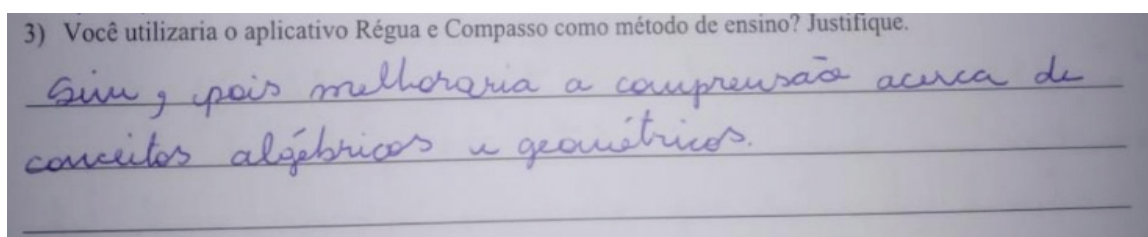 3) Você utilizaria o aplicativo Régua e Compasso como método de ensino? Justifique.
Sim, pois melhoraria a comprensão acerca de
conceitos algébricos e geométricos.